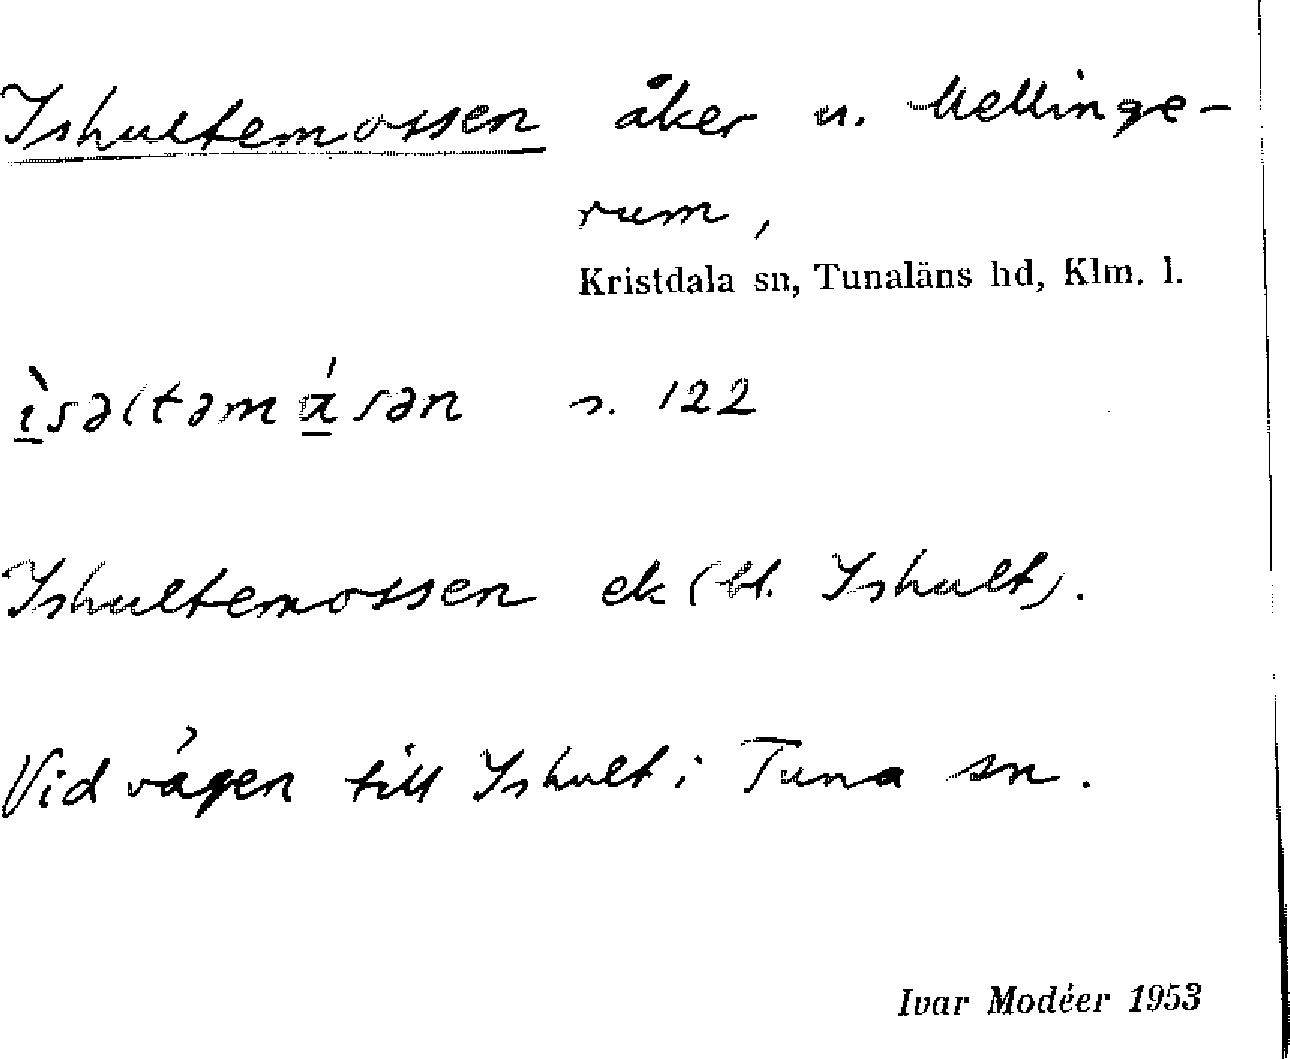 Ishultemossen åker u. Mellinge-
rum,
Kristdala sn, Tunaläns hd, Klm. l.
s. 122
Ishultemossen ek (bl. Ishult).
Vid vägen till Ishult i Tuna sn.
Ivar Modéer 1953